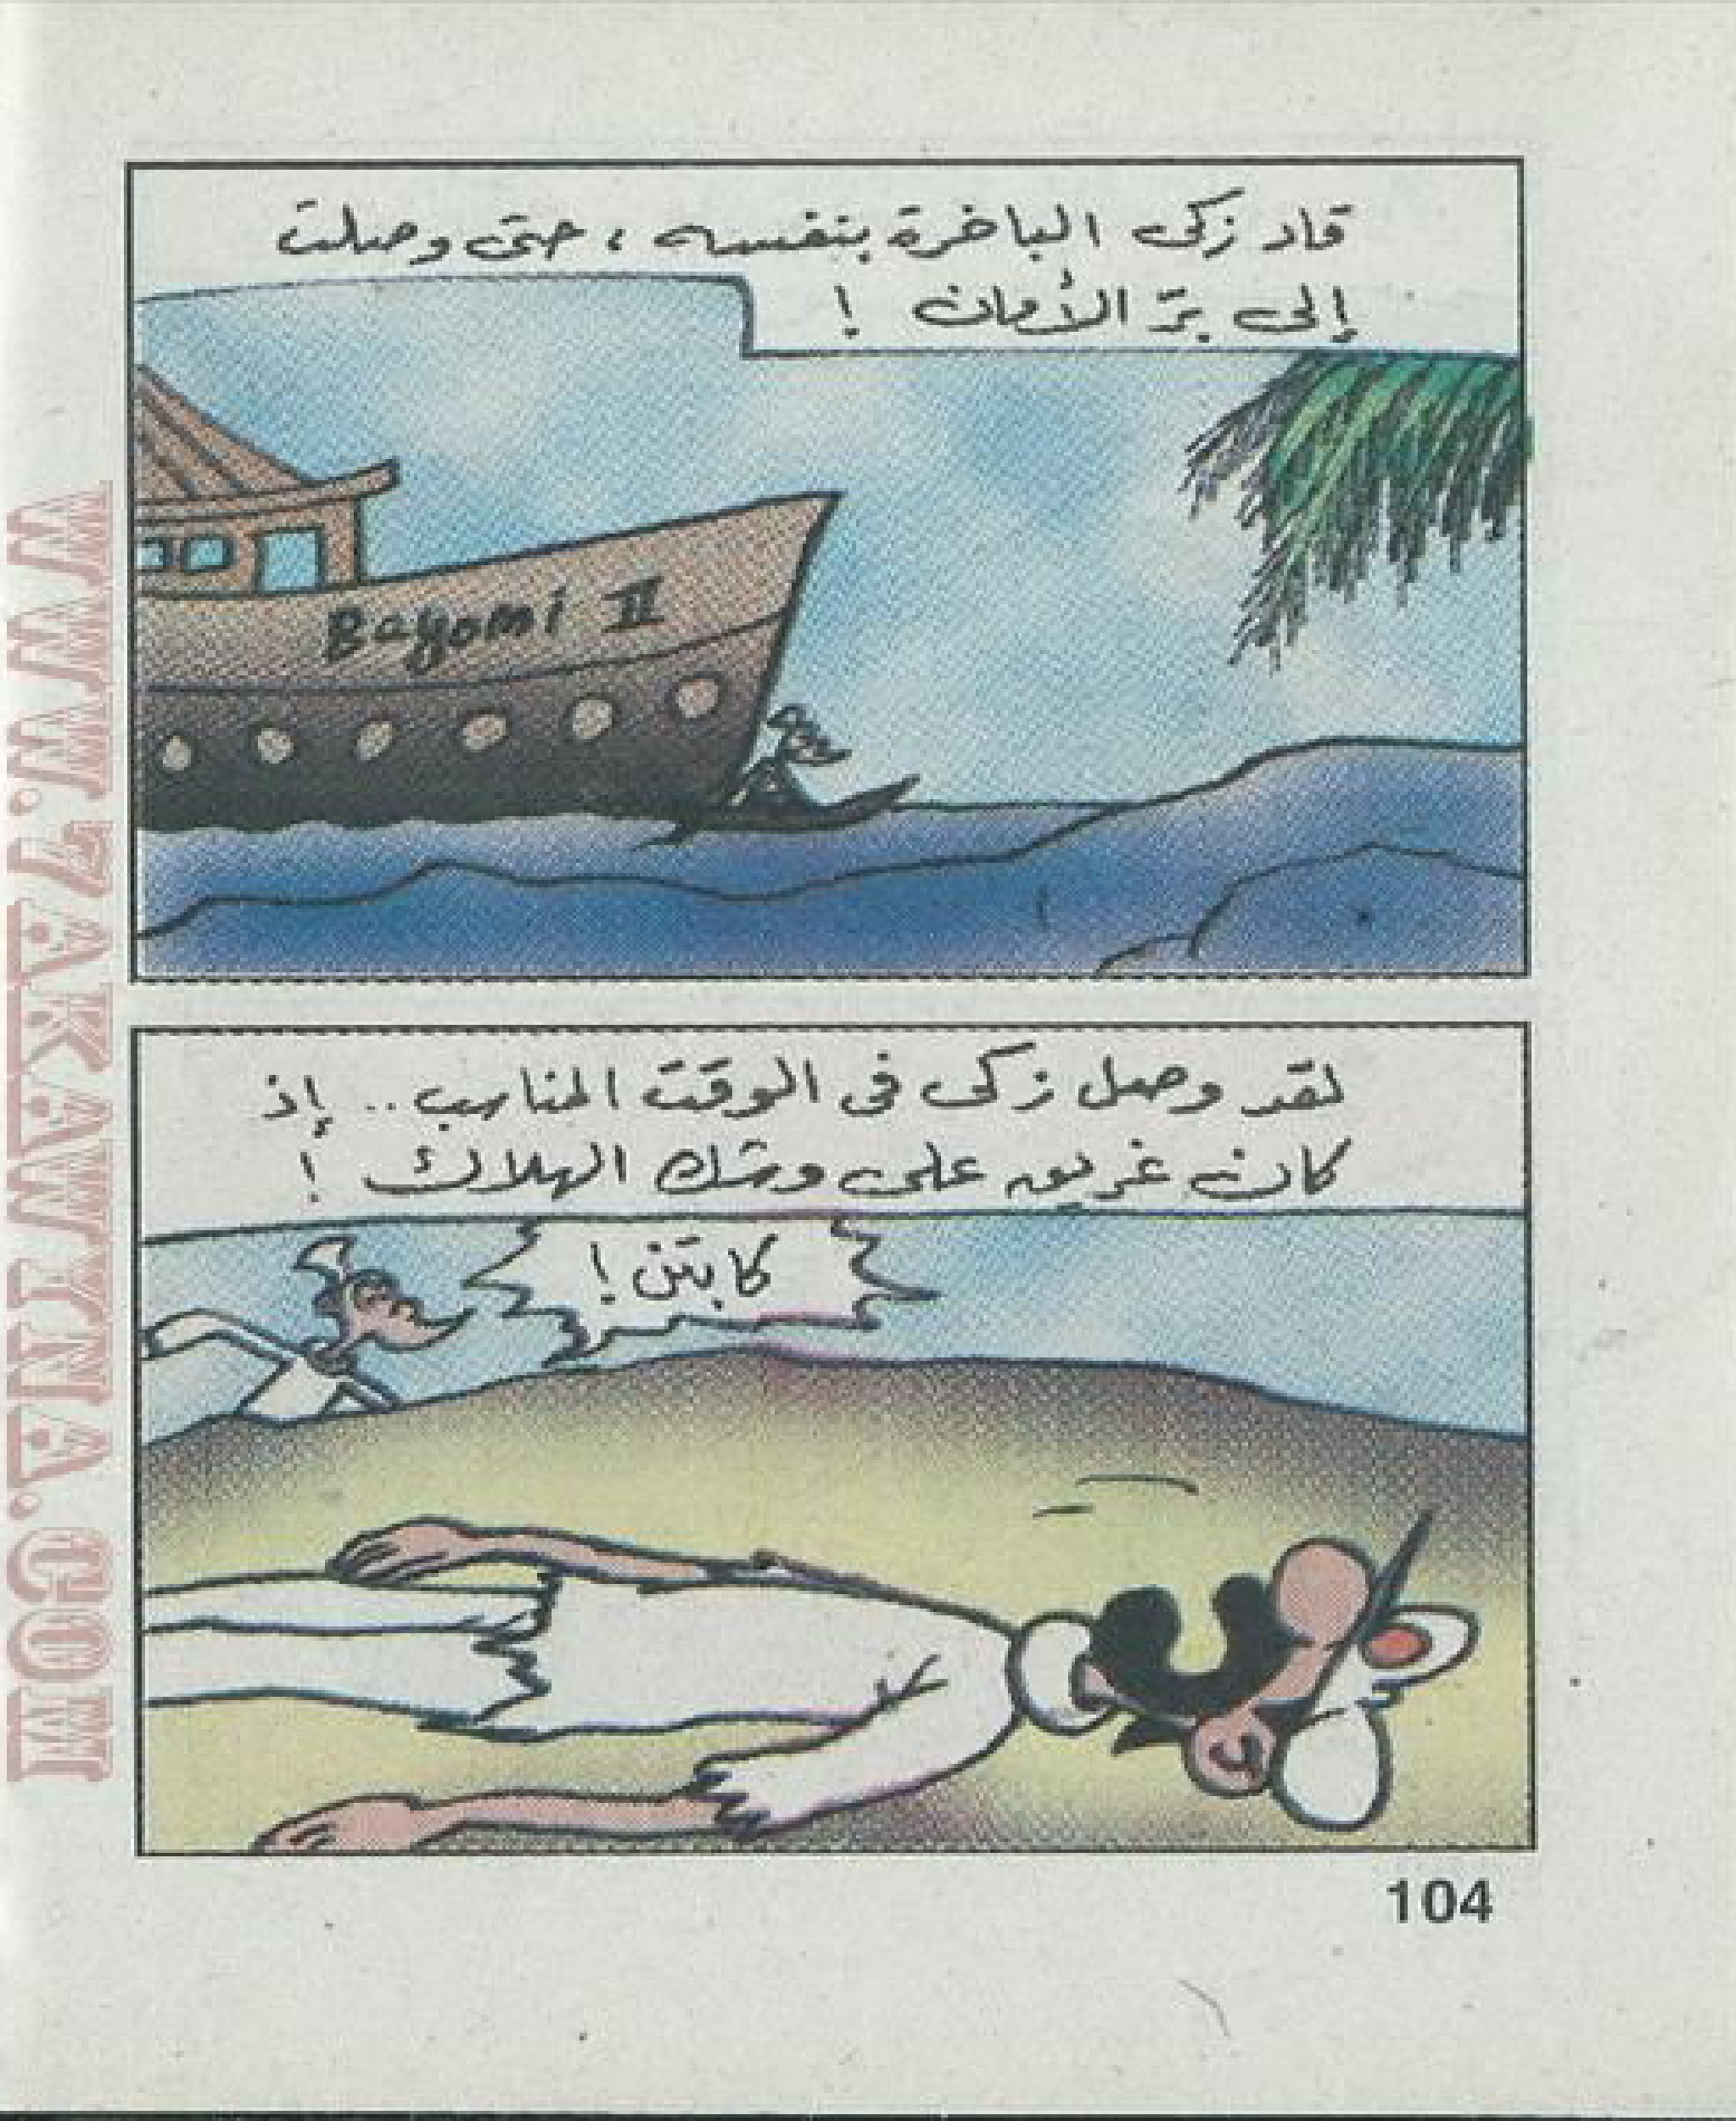 قاد زكى الباخرة بنفسه ، حتى وصلت
إلى برّ الأمان !
Bayomi II
لقد وصل زكى فى الوقت المناسب .. إذ
كان غريق على وشك الهلاك !
كابتن !
104
WWW.7AKAWYNA.COM